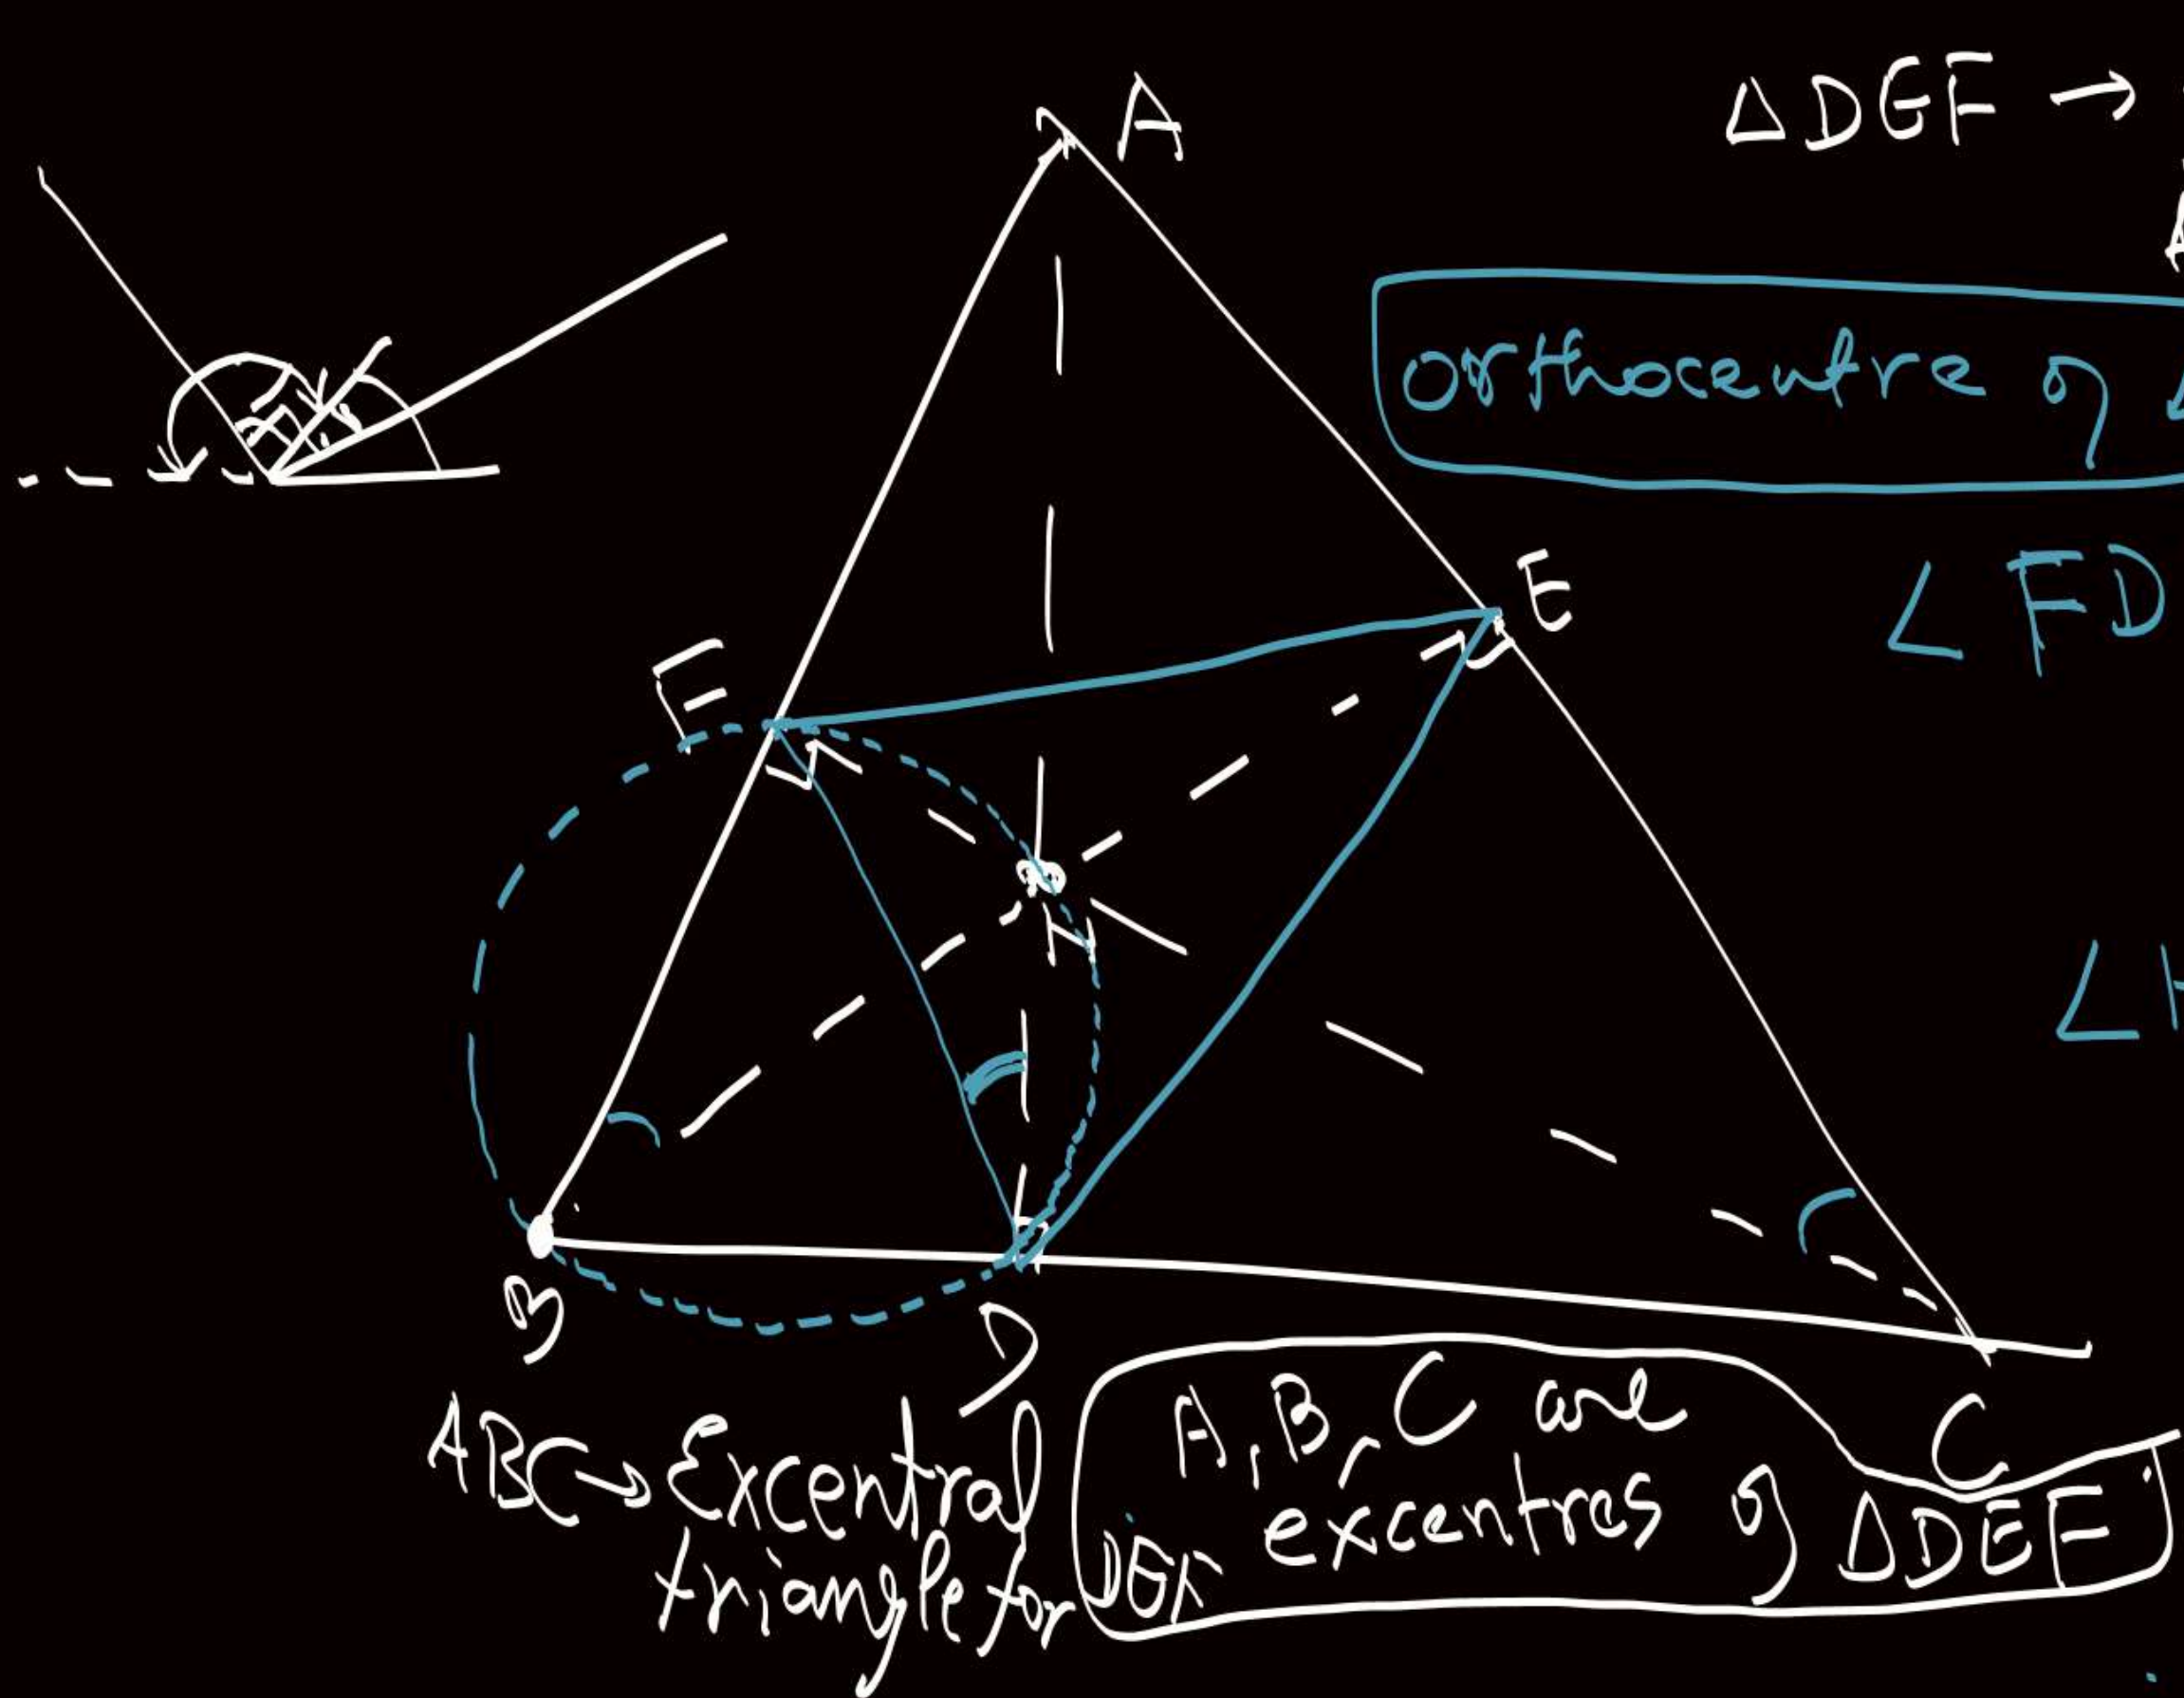 A
ΔDEF →
orthocentre of Δ
∠FD
E
F
H
∠H
B
D
C
ABC → Excentral
triangle for DEF
A, B, C are
excentres of ΔDEF